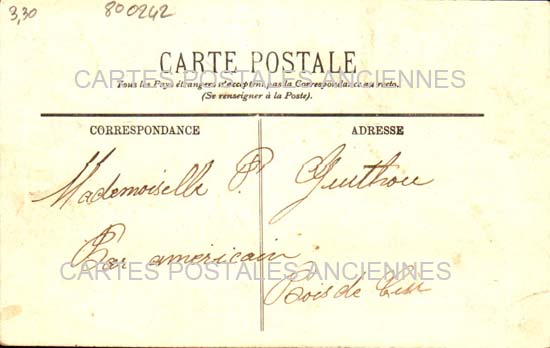 3,30 800242
CARTE POSTALE
CARTES POSTALES ANCIENNES
Tous les Pays étrangers n'acceptent pas la Correspondance au recto.
(Se renseigner à la Poste).
CORRESPONDANCE ADRESSE
Mademoiselle P. Guithou
Bar americain
CARTES POSTALES ANCIENNES
Bois de